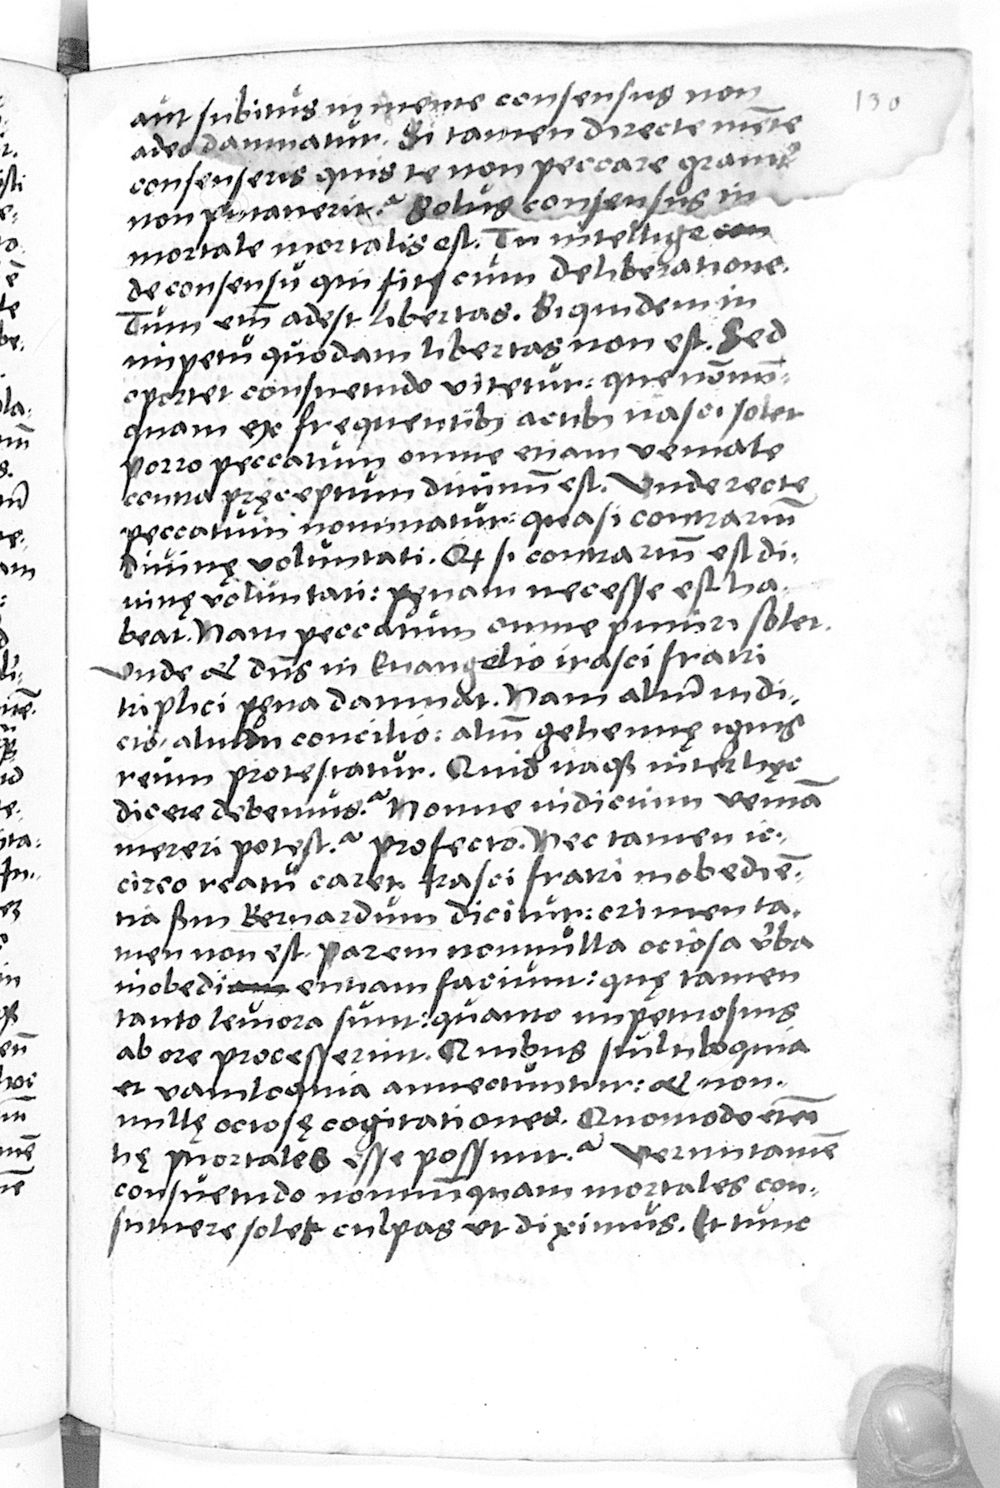 130
aut subitus in mente consensus non
adeo damnatur. Si tamen directe mēte
consenseris quis te non peccare grauit̃
non putauerit? Solus consensus in
mortale mortalis est. Tu intellige
de consensu qui fit cum deliberatione.
Tum em̄ adest libertas. Siquidem in
impetu quodam libertas non est. Sed
oportet consuetudo vitetur: que nōnū-
quam ex frequentib; actib; nasci solet
porro peccatum omne etiam veniale
contra pręceptum diuinū est. Vnde recte
peccatum nominatur: quasi contrariū
diuinę voluntati. Qƺ si contrariū est di-
uinę voluntati: pęnam necesse est ha-
beat. Nam peccatum omne puniri solet.
Vnde & dn̄s in Euangelio irasci fratri
triplici pęna damnat. Nam aliud iudi-
cio, aliud concilio: aliū gehennę ignis
reum protestatur. Quid itaqƺ inter hęc
dicere debemus? Nonne iudicium veniā
mereri potest? profecto. Nec tamen ic-
circo reatu caret. Irasci fratri inobediē-
tia s̄m Bernardum dicitur: crimen ta-
men non est. parem nonnulla ociosa v̄ba
inobedi entiam faciunt: quę tamen
tanto leuiora sunt: quanto impetuosius
ab ore processerint. Quibus stultiloquia
et vaniloquia annectuntur: & non-
nullę ociosę cogitationes. Quomodo eteī
hę mortales esse possunt? Veruntamē
consuetudo nonnūquam mortales con-
stituere solet culpas vt diximus. Et tunc